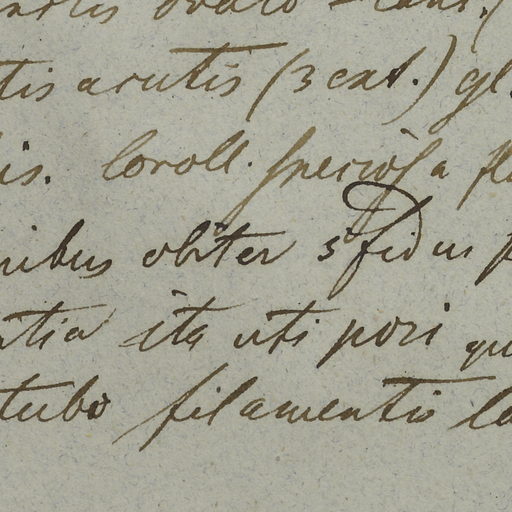 ovato - lanc. (
tis acutis (3 ext.) gl
is. Coroll. speciosa fl
nibus obiter 5 fidus p
ntia ita uti pori qu
tubo filamentis la